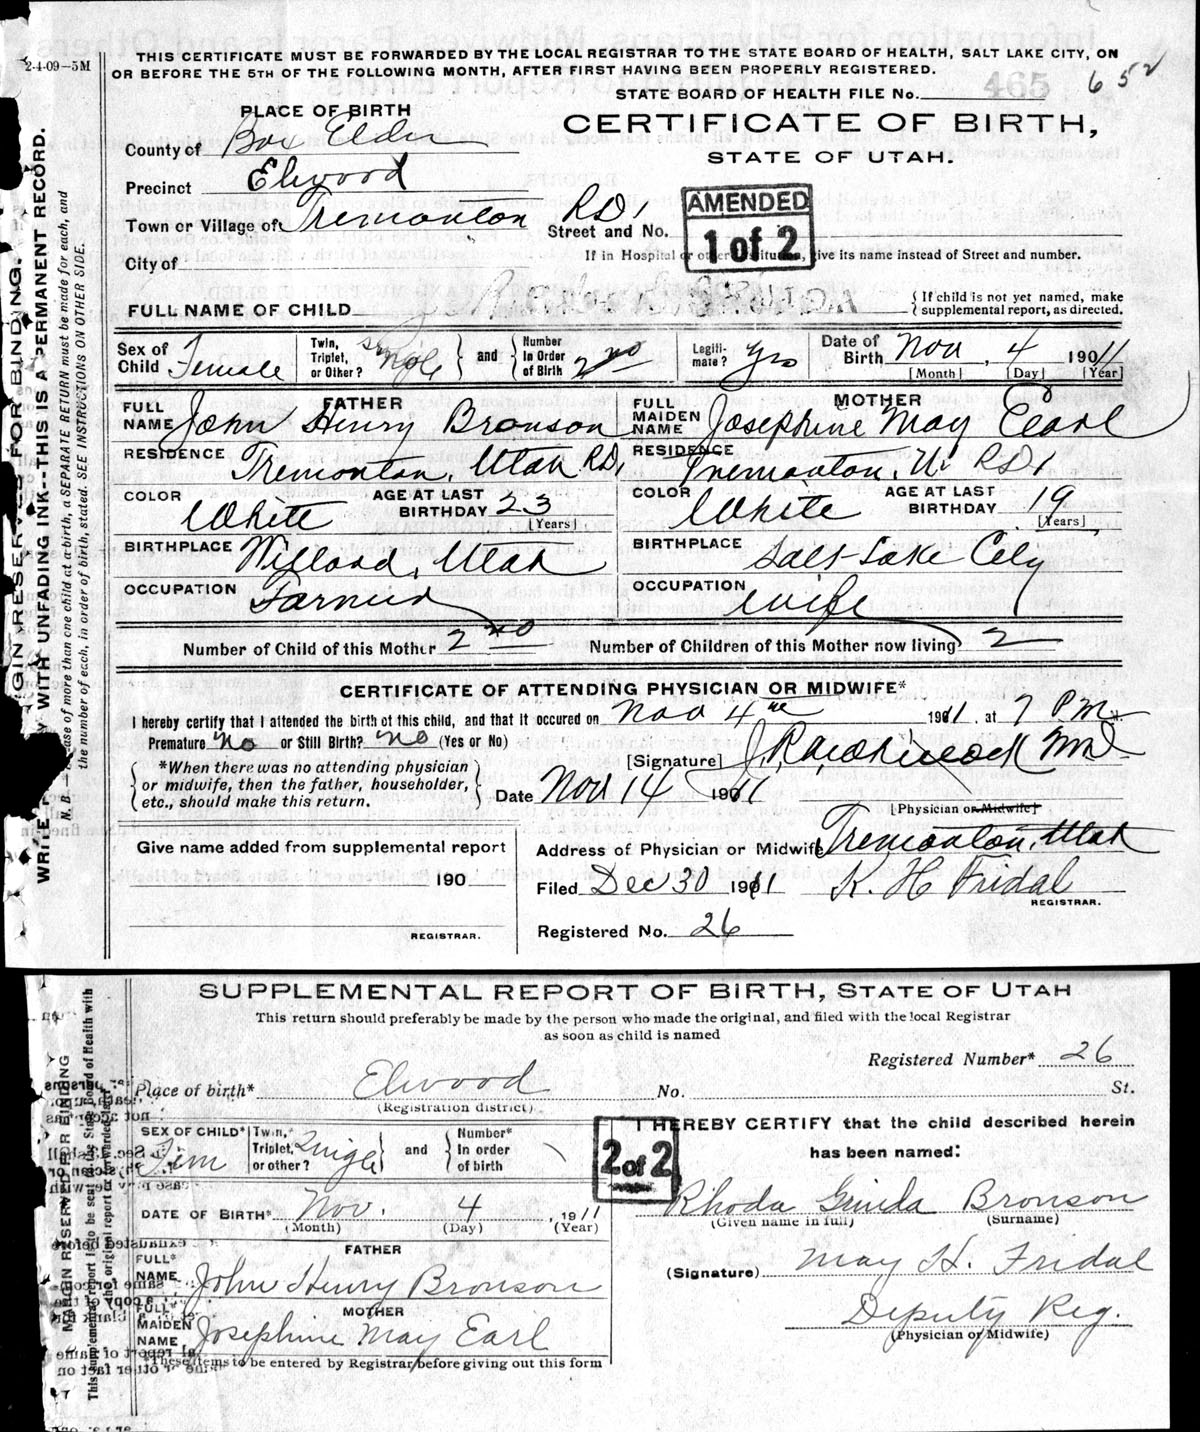 2-4-09-5M
THIS CERTIFICATE MUST BE FORWARDED BY THE LOCAL REGISTRAR TO THE STATE BOARD OF HEALTH, SALT LAKE CITY, ON
OR BEFORE THE 5TH OF THE FOLLOWING MONTH, AFTER FIRST HAVING BEEN PROPERLY REGISTERED.
STATE BOARD OF HEALTH FILE No. 465 652
PLACE OF BIRTH
CERTIFICATE OF BIRTH,
STATE OF UTAH.
County of Box Elder
Precinct Elwood
Town or Village of Tremonton RD1 Street and No.
AMENDED
1 of 2
City of
If in Hospital or other institution, give its name instead of Street and number.
FULL NAME OF CHILD
{ If child is not yet named, make supplemental report, as directed.
Sex of Child Female Twin, Triplet, or Other? Single } and { Number In Order of Birth 2nd Legitimate? Yes Date of Birth Nov, 4 1911
[Month] [Day] [Year]
FATHER MOTHER
FULL NAME John Henry Bronson FULL MAIDEN NAME Josephine May Earl
RESIDENCE Tremonton, Utah RD1 RESIDENCE Tremonton, U. RD1
COLOR White AGE AT LAST BIRTHDAY 23 [Years] COLOR White AGE AT LAST BIRTHDAY 19 [Years]
BIRTHPLACE Willard, Utah BIRTHPLACE Salt Lake City
OCCUPATION Farmer OCCUPATION Wife
Number of Child of this Mother 2nd Number of Children of this Mother now living 2
CERTIFICATE OF ATTENDING PHYSICIAN OR MIDWIFE*
I hereby certify that I attended the birth of this child, and that it occured on Nov 4th 1911, at 7 P M.
Premature No or Still Birth? No (Yes or No)
[Signature]
{ *When there was no attending physician or midwife, then the father, householder, etc., should make this return. }
Date Nov 14 1911
[Physician or Midwife]
Give name added from supplemental report
Address of Physician or Midwife Tremonton, Utah
190
Filed Dec 30 1911 K. H Fridal
REGISTRAR.
REGISTRAR.
Registered No. 26
WRITE WITH UNFADING INK--THIS IS A PERMANENT RECORD.
N. B.—In case of more than one child at a birth, a SEPARATE RETURN must be made for each, and
the number of each, in order of birth, stated. SEE INSTRUCTIONS ON OTHER SIDE.
SUPPLEMENTAL REPORT OF BIRTH, STATE OF UTAH
This return should preferably be made by the person who made the original, and filed with the local Registrar
as soon as child is named
Registered Number* 26
Place of birth* Elwood No. St.
(Registration district)
SEX OF CHILD* Fem Twin, Triplet, or other? Single } and { Number* In order of birth
2 of 2
I HEREBY CERTIFY that the child described herein
has been named:
DATE OF BIRTH* Nov. 4, 1911
(Month) (Day) (Year)
Rhoda Bronson
(Given name in full) (Surname)
FATHER
FULL* NAME John Henry Bronson
(Signature) May H. Fridal
MOTHER
FULL* MAIDEN NAME Josephine May Earl
Deputy Reg.
(Physician or Midwife)
*These items to be entered by Registrar before giving out this form
MARGIN RESERVED FOR BINDING